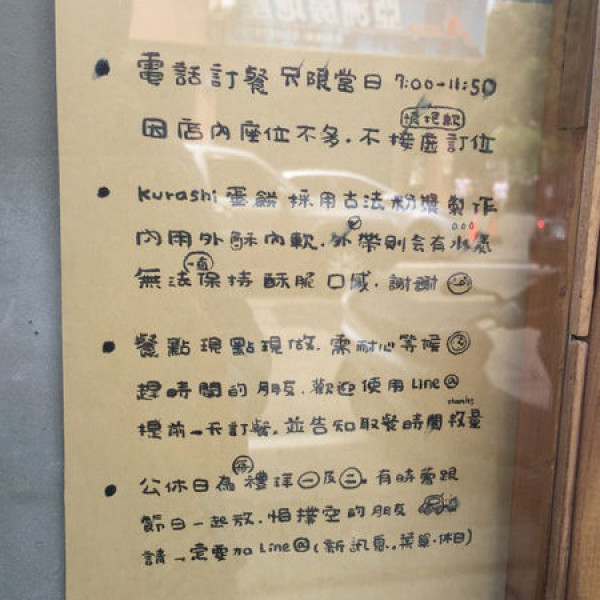 電話訂餐只限當日 7:00-11:50
很抱歉
因店內座位不多.不接處訂位
kurashi 蛋餅採用古法粉漿製作
內用外酥內軟.外帶則會有水氣
無法一直保持酥脆口感.謝謝
餐點現點現做.需耐心等候
趕時間的朋友.歡迎使用Line@
thanks
提前一天訂餐.並告知取餐時間
公休日為每禮拜一及二.有時會跟
節日一起放.怕撲空的朋友
請一定要加Line@(新訊息.菜單.休日)